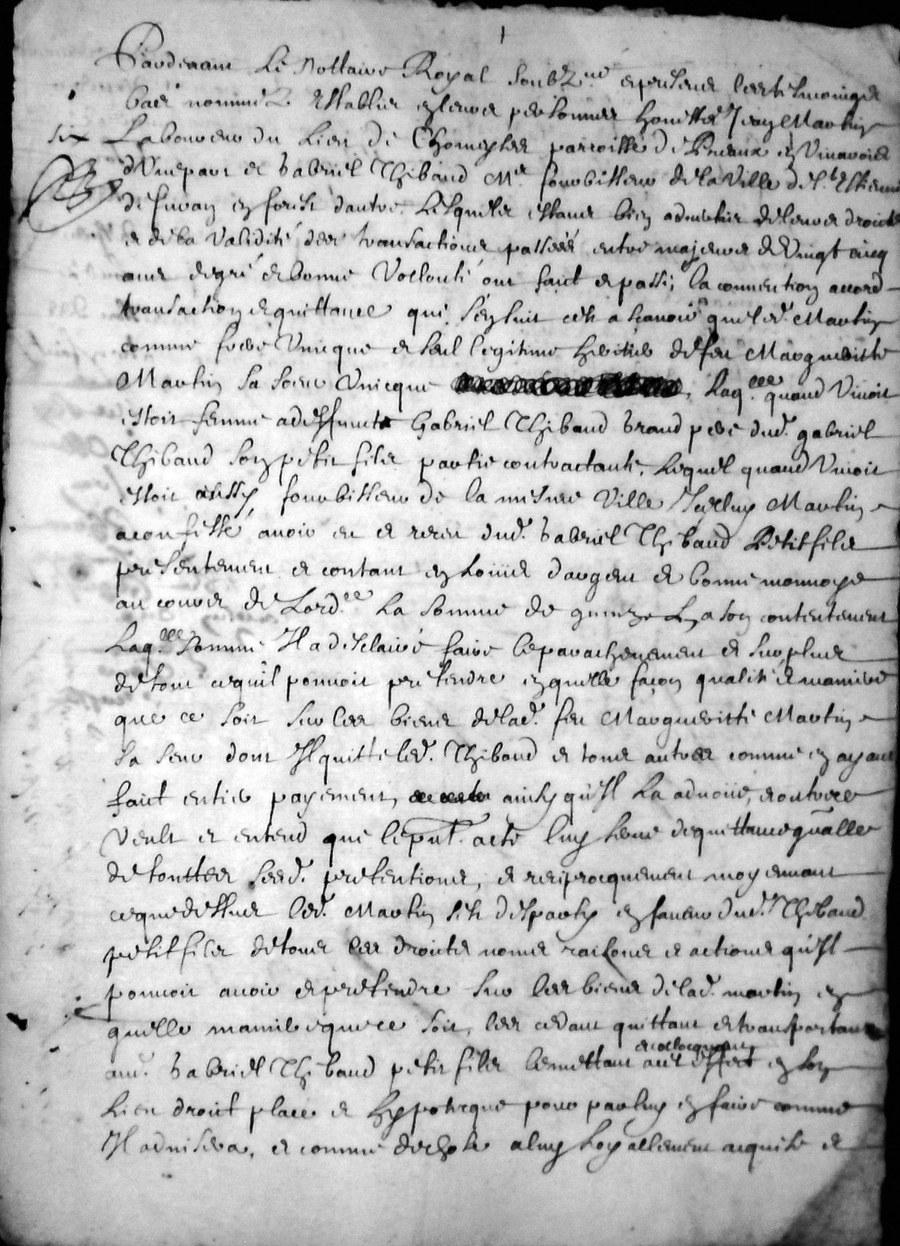 1
Pardevant le Nottaire Royal soubz.né et presens les tesmoings
bas nommés Establis en leurs personnes honestes Jean Martin
six
Laboureur du lieu de Chomeyles parroisse de en Vivarois
d'Une part et Gabriel Thibaud Me fourbisseur de la Ville de St Estienne
de furan en forest d'autre. Lesquels estant bien advertis de leurs droits
et de la validité des transactions passées entre majeurs de Vingt cinq
ans de gré et bonne Vollonté ont fait et passé, la convention accord
transaction et quittance qui s'ensuit c'est a scavoir que led. Martin
comme frere Unicque et seul legitime heritier de feu Margueritte
Martin sa soeur Unicque , Laq.lle quand Vivoit
estoit femme a deffunct Gabriel Thibaud Grand pere dud. gabriel
Thibaud son petit fils partie contractante. Lequel quand Vivoit
estoit aussy fourbisseur de la mesme Ville Icelluy Martin
a confessé avoir eu et receu dud. Gabriel Thibaud Petit fils
presentement et contant en Louis d'argent et bonne monnoye
au couvrs de Lord.ce La somme de quinze L a son contentement
Laq.lle somme Il a desclairé faire le parachevement et surplus
de tout ce qu'il pouvoit pretendre en quelle façon qualité et maniere
que ce soit sur les biens de lad. feu Margueritte Martin
sa seur dont Il quitte led. Thibaud et tous autres comme en ayant
faict entier payement, ainsy qu'Il La advoüé, et outre ce
Veult et entend que le pnt. acte luy serve de quittance g.nalle
de touttes sesd. pretentions, et reciprocquement moyennant
ce que dessus led. Martin s'est desparty en faveur dud. Thibaud
petit fils de tous les droits noms raisons et actions qu'Il
pouvoit avoir et pretendre sur les biens de lad. martin en
quelle maniere que ce soit, les cedant quittant et transportant
et collocquant
aud. Gabriel Thibaud petit fils le mettant aud effect en son
Lieu droit place et hypotecque pour par luy en faire comme
Il advisera, et comme de chose a luy Loyallement acquise et